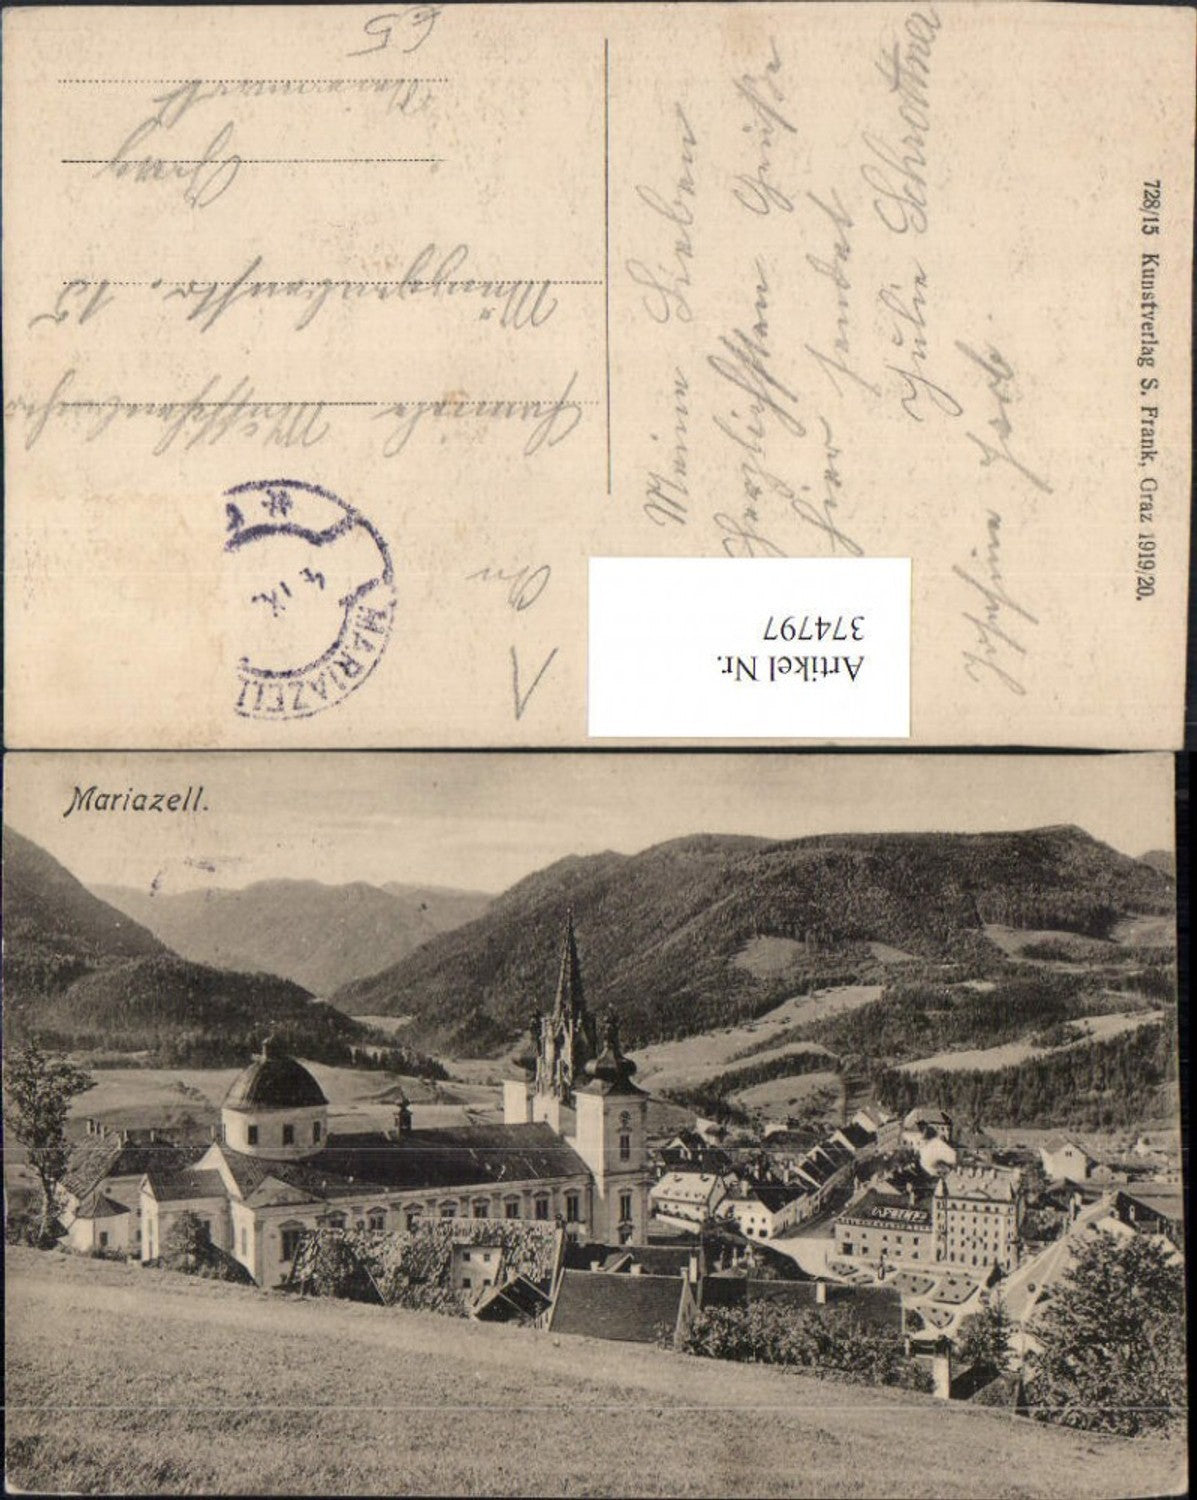 65
Meine Lieben
Herzlichsten Grüße
hier sendet
Julie Schrottner
Josefine
An
Familie
15
Graz
Steiermark
MARIAZELL
728/15 Kunstverlag S. Frank, Graz 1919/20.
Artikel Nr.
374797
Mariazell.